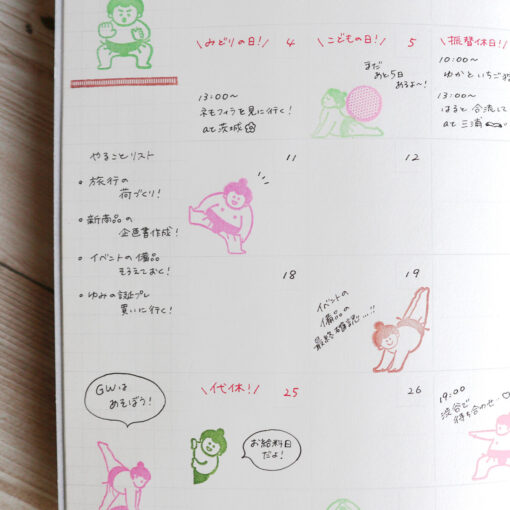 \みどりの日!/ 4
\こどもの日!/ 5
\振替休日!/
まだ
あと5日
あるよ〜!
10:00〜
ゆかと いちご
13:00〜
はると 合流して
at 三浦
13:00〜
ネモフィラを見に行く!
at 茨城
やることリスト
• 旅行の
荷づくり!
• 新商品の
企画書作成!
• イベントの備品
そろえておく!
• ゆみの誕プレ
買いに行く!
11
12
18
19
イベントの
備品の
最終確認…!!
GWは
あそぼう!
\代休!/ 25
お給料日
だよ!
26
19:00
渋谷で
待ち合わせ…♡